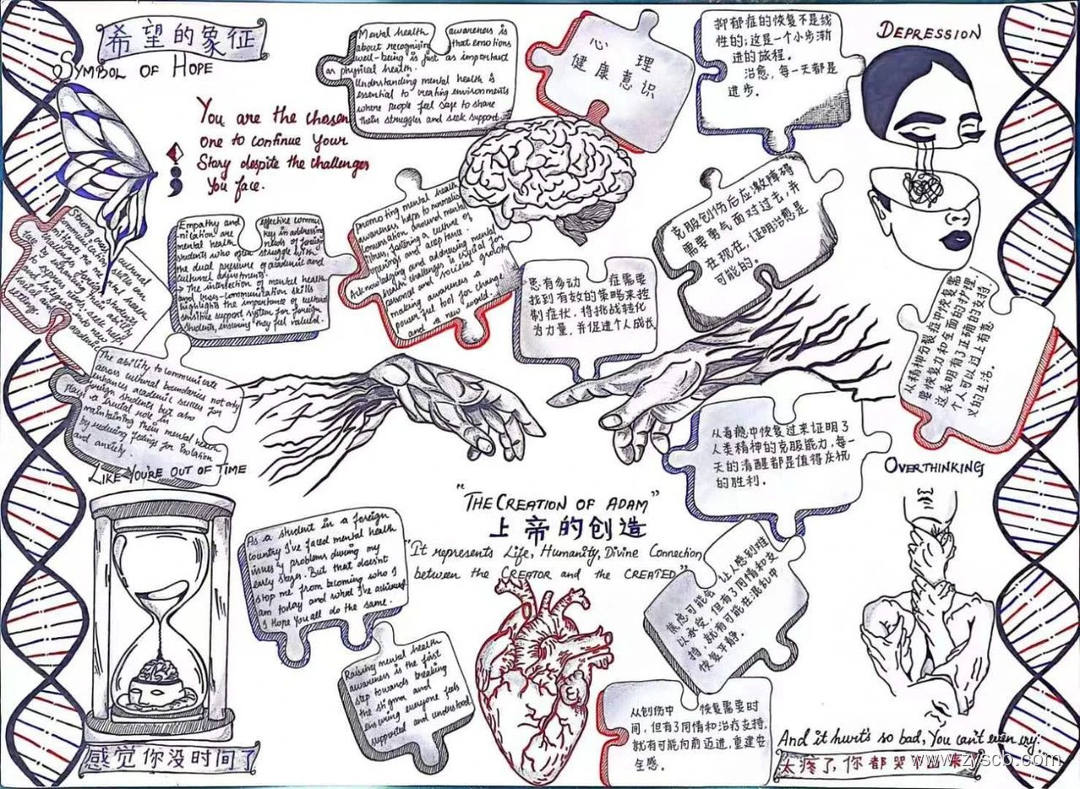 希望的象征
SYMBOL OF HOPE
You are the chosen
one to continue Your
Story despite the challenges
You face.
Mental health awareness is
about recognising that emotions
well-being is just as important
as physical health.
Understanding mental health is
essential to creating environments
where people feel safe to share
their struggles and seek support
心理
健康意识
抑郁症的恢复不是线
性的；这是一个小步渐
进的旅程。
治愈，每一天都是
进步。
DEPRESSION
Empathy and effective commu
nication are key in addressing
mental health needs of foreign
students who often struggle with
the dual pressure of academic and
cultural adjustments.
The intersection of mental health
and cross-communication skills
highlights the importance of cultural
sensitive support system for foreign
students, ensuring they feel valued.
promoting mental health
awareness helps to normalise
conversation around mental
fostering a culture of
and acceptance.
Acknowledging and addressing mental
health challenges is crucial for
personal and societal growth
making awareness a
powerful tool for change
and a new world.
克服创伤后应激障碍
需要勇气面对过去，并
在现在，证明治愈是
可能的。
患有多动症需要
找到有效的策略来控
制症状，将挑战转化
为力量，并促进个人成长
从精神分裂症中恢复需
要恢复力和全面的护理，
这表明有了正确的支持，
个人可以过上有意
义的生活。
The ability to communicate
across cultural boundaries not only
enhances academic success for
foreign students but also
plays a crucial role in
maintaining their mental health
by reducing feelings for isolation
and anxiety.
从毒瘾中恢复过来证明了
人类精神的克服能力，每一
天的清醒都是值得庆祝
的胜利。
LIKE YOU'RE OUT OF TIME
感觉你没时间了
"THE CREATION OF ADAM"
上帝的创造
"It represents Life, Humanity, Divine Connection
between the CREATOR and the CREATED"
OVERTHINKING
As a student in a foreign
country I've faced mental health
issues & problems during my
early stages. But that doesn't
stop me from becoming who I
am today and what I've achieved
I Hope You all do the same.
焦虑可能会让人感到难
以承受，但有了同情和支
持，就有可能在混乱中
恢复平静。
Raising mental health
awareness is the first
step towards breaking
the stigma and
ensuring everyone feels
supported and understood
从创伤中恢复需要时
间，但有了同情和治疗支持，
就有可能向前迈进，重建安
全感。
And it hurts so bad, You can't even cry.
太疼了，你都哭不出来
www.zyscb.com